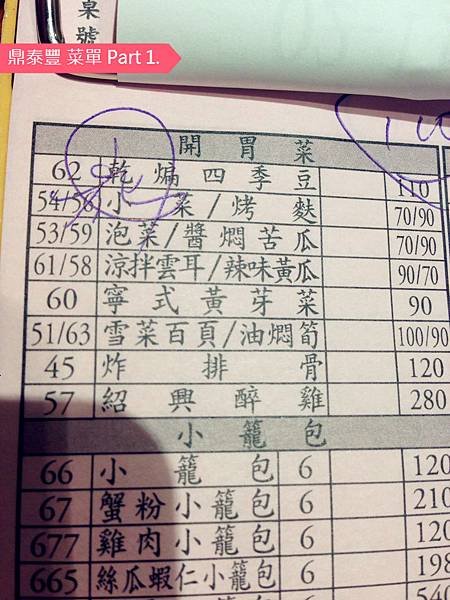 桌號
鼎泰豐 菜單 Part 1.
開胃菜
62 乾煸四季豆 110
54/56 小菜/烤麩 70/90
53/59 泡菜/醬燜苦瓜 70/90
61/58 涼拌雲耳/辣味黃瓜 90/70
60 寧式黃芽菜 90
51/63 雪菜百頁/油燜筍 100/90
45 炸排骨 120
57 紹興醉雞 280
小籠包
66 小籠包 6 120
67 蟹粉小籠包 6 210
677 雞肉小籠包 6 120
665 絲瓜蝦仁小籠包 6 198
540